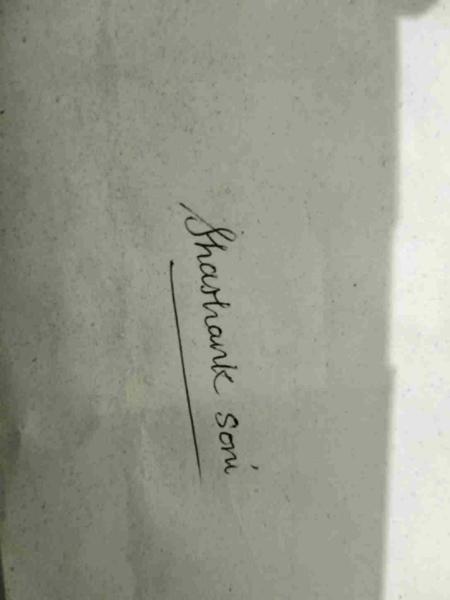 Shashank Soni